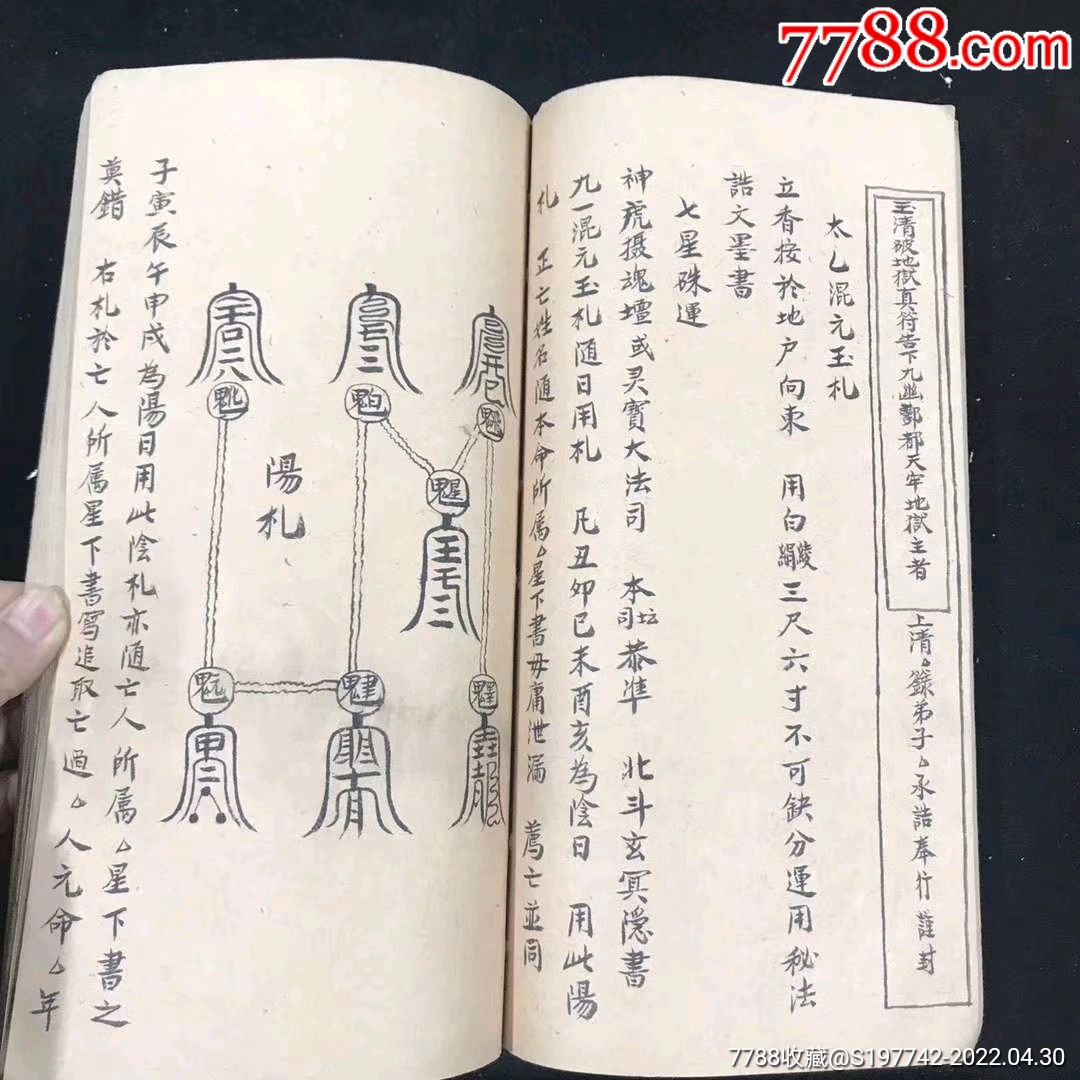 7788.com
玉清破地獄真符告下九幽酆都天牢地獄主者
上清△籙弟子△承誥奉行謹封
太乙混元玉札
立香按於地户向東 用白綾絹三尺六寸不可缺分運用秘法
誥文墨書
七星硃運
神虎摄魂壇或灵寳大法司 本坛司恭準 北斗玄冥隐書
九一混元玉札随日用札 凡丑卯巳未酉亥為陰日 用此陽
札 正亡姓名随本命所属△星下書毋庸泄漏 薦亡並同
陽札
魁
子寅辰午申戌為陽日用此陰札亦随亡人所属△星下書之
莫錯 右札於亡人所属星下書寫追取亡過△人元命△年
7788收藏@S197742-2022.04.30